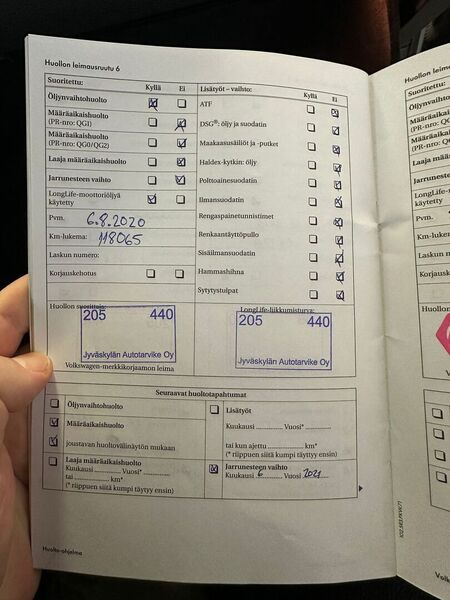 Huollon leimausruutu 6
Suoritettu: Kyllä Ei
Öljynvaihtohuolto
Määräaikaishuolto
(PR-nro: QG1)
Määräaikaishuolto
(PR-nro: QG0/QG2)
Laaja määräaikaishuolto
Jarrunesteen vaihto
LongLife-moottoriöljyä
käytetty
Pvm. 6.8.2020
Km-lukema: 118065
Laskun numero:
Korjauskehotus
Lisätyöt – vaihto: Kyllä Ei
ATF
DSG®: öljy ja suodatin
Makaasusäiliöt ja -putket
Haldex-kytkin: öljy
Polttoainesuodatin
Ilmansuodatin
Rengaspaine tunnistimet
Renkaantäyttöpullo
Sisäilmansuodatin
Hammashihna
Sytytystulpat
Huollon suorittaja:
205 440
Jyväskylän Autotarvike Oy
Volkswagen-merkkikorjaamon leima
LongLife-liikkumisturva:
205 440
Jyväskylän Autotarvike Oy
Seuraavat huoltotapahtumat
Öljynvaihtohuolto
Määräaikaishuolto
joustavan huoltovälinäytön mukaan
Laaja määräaikaishuolto
Kuukausi Vuosi*
tai km*
(* riippuen siitä kumpi täytyy ensin)
Lisätyöt
Kuukausi Vuosi*
tai kun ajettu km*
(* riippuen siitä kumpi täyttyy ensin)
Jarrunesteen vaihto
Kuukausi 6 Vuosi 2021
Huolto-ohjelma
Huollon leima
Suoritettu:
Öljynvaihtohuolto
Määräaikaishuolto
(PR-nro: QG1)
Määräaikaishuolto
(PR-nro: QG0/QG2)
Laaja määräaikaish
Jarrunesteen vaiht
LongLife-moottori
käytetty
Pvm.
Km-lukema:
Laskun numero:
Korjauskehotus
Huollon
Volk